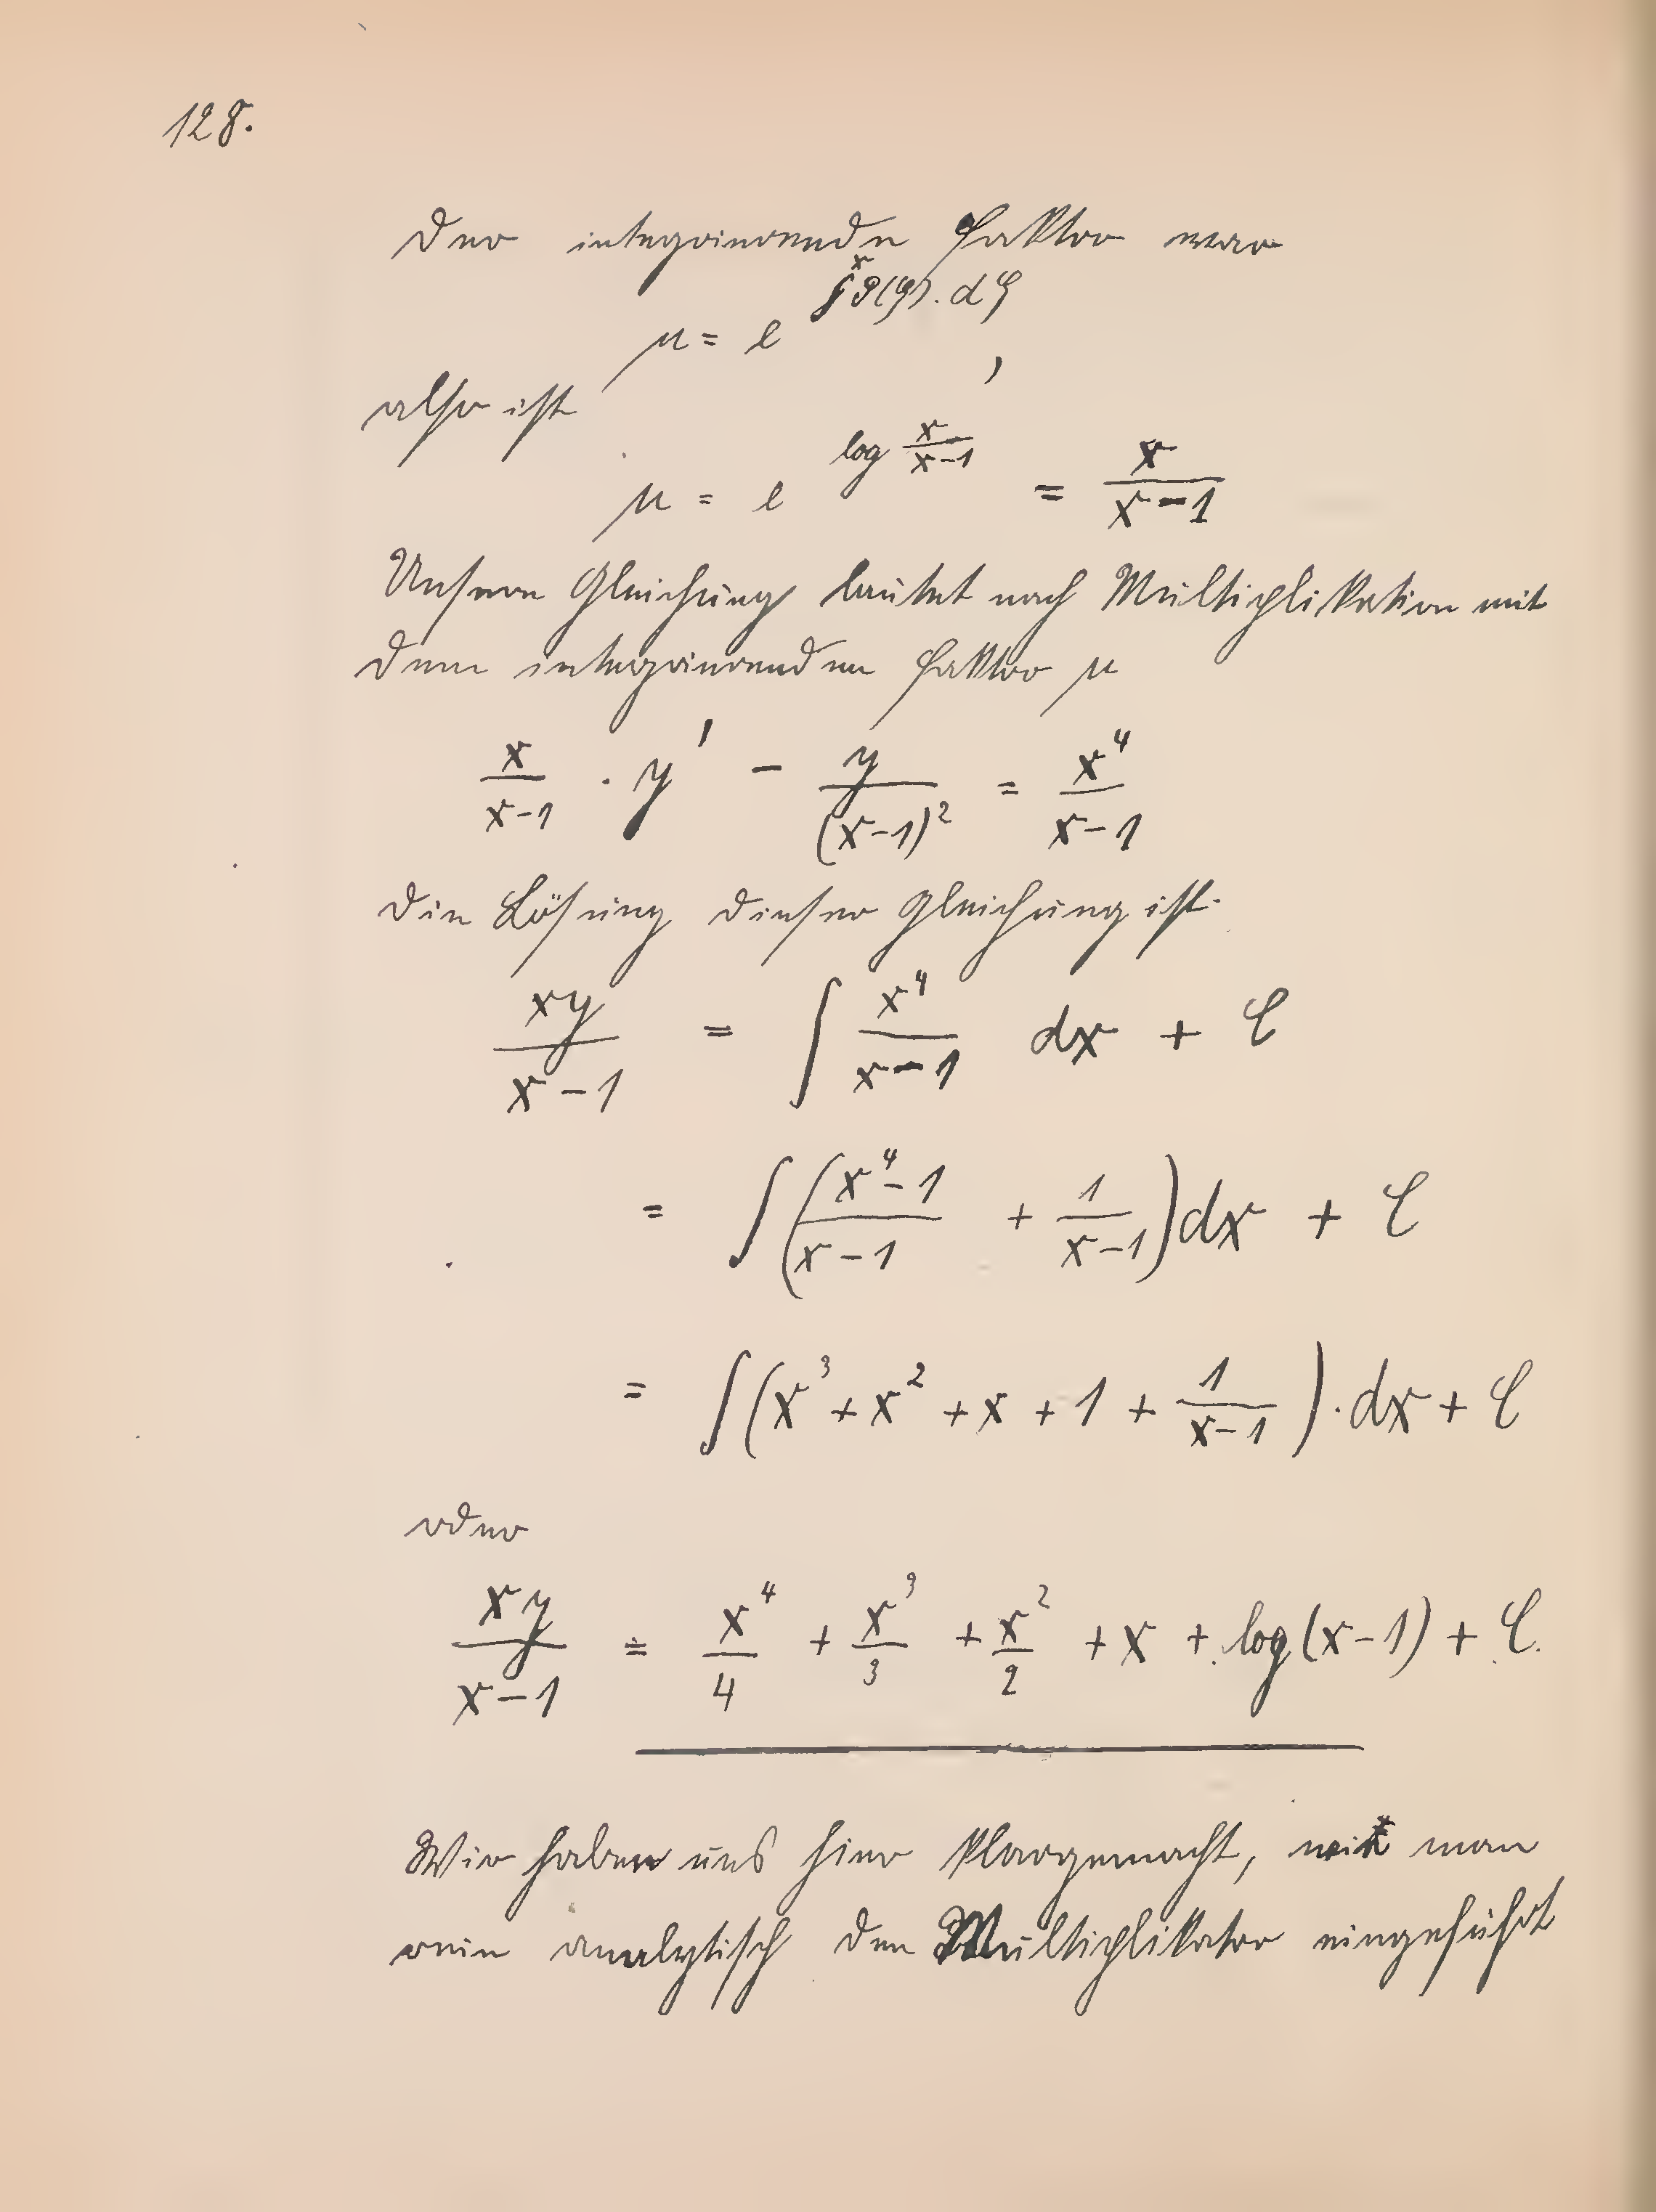 128.
Der integrierende Faktor war
μ = e^{∫^x φ(ξ). dξ},
also ist
μ = e^{log \frac{x}{x-1}} = \frac{x}{x-1}
Unsere Gleichung lautet nach Multiplikation mit
dem integrierenden Faktor μ
\frac{x}{x-1} · y' - \frac{y}{(x-1)^2} = \frac{x^4}{x-1}
Die Lösung dieser Gleichung ist.
\frac{xy}{x-1} = ∫ \frac{x^4}{x-1} dx + C
= ∫ (\frac{x^4-1}{x-1} + \frac{1}{x-1}) dx + C
= ∫ (x^3 + x^2 + x + 1 + \frac{1}{x-1}) · dx + C
oder
\frac{xy}{x-1} = \frac{x^4}{4} + \frac{x^3}{3} + \frac{x^2}{2} + x + log(x-1) + C.
Wir haben uns hier klargemacht, wie man
rein analytisch den Multiplikator eingeführt